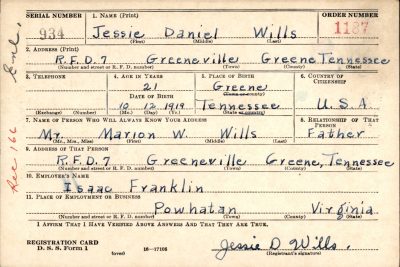 SERIAL NUMBER 1. NAME (Print) ORDER NUMBER
934 Jessie Daniel Wills 1187
(First) (Middle) (Last)
2. ADDRESS (Print)
R.F.D. 7 Greeneville Greene, Tennessee
(Number and street or R. F. D. number) (Town) (County) (State)
3. TELEPHONE 4. AGE IN YEARS 5. PLACE OF BIRTH 6. COUNTRY OF CITIZENSHIP
21 Greene
(Town or county)
DATE OF BIRTH
10 12 1919 Tennessee U.S.A
(Exchange) (Number) (Mo.) (Day) (Yr.) (State or country)
7. NAME OF PERSON WHO WILL ALWAYS KNOW YOUR ADDRESS 8. RELATIONSHIP OF THAT PERSON
Mr. Marion W. Wills Father
(Mr., Mrs., Miss) (First) (Middle) (Last)
9. ADDRESS OF THAT PERSON
R.F.D. 7 Greeneville Greene, Tennessee
(Number and street or R. F. D. number) (Town) (County) (State)
10. EMPLOYER'S NAME
Isaac Franklin
11. PLACE OF EMPLOYMENT OR BUSINESS
Powhatan Virginia
(Number and street or R. F. D. number) (Town) (County) (State)
I AFFIRM THAT I HAVE VERIFIED ABOVE ANSWERS AND THAT THEY ARE TRUE.
REGISTRATION CARD
D. S. S. Form 1 (over) 16-17105
Jessie D Wills.
(Registrant's signature)